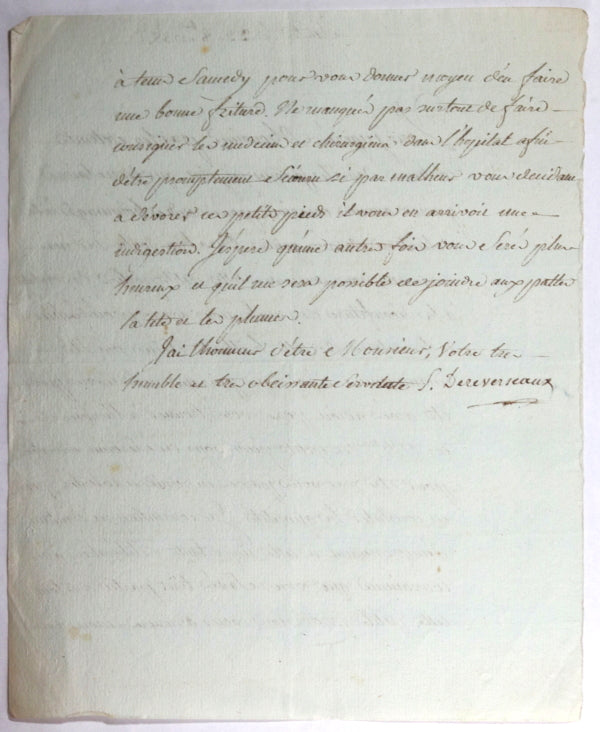 à tems Samedy pour vous donner moyen d'en faire
une bonne friture. Ne manqués pas surtout de faire
consigner les medecins et chirurgiens dans l'hopital afin
d'être promptement secouru si par malheur vous
a dévorer ces petits pieds il vous en arrivoit une
indigestion. J'espere qu'une autre fois vous serés plus
heureux et qu'il me sera possible de joindre aux pattes
la tete et les plumes.
J'ai l'honneur d'etre Monsieur, Votre tres
humble et tres obeissante Servante S. Dereverseaux